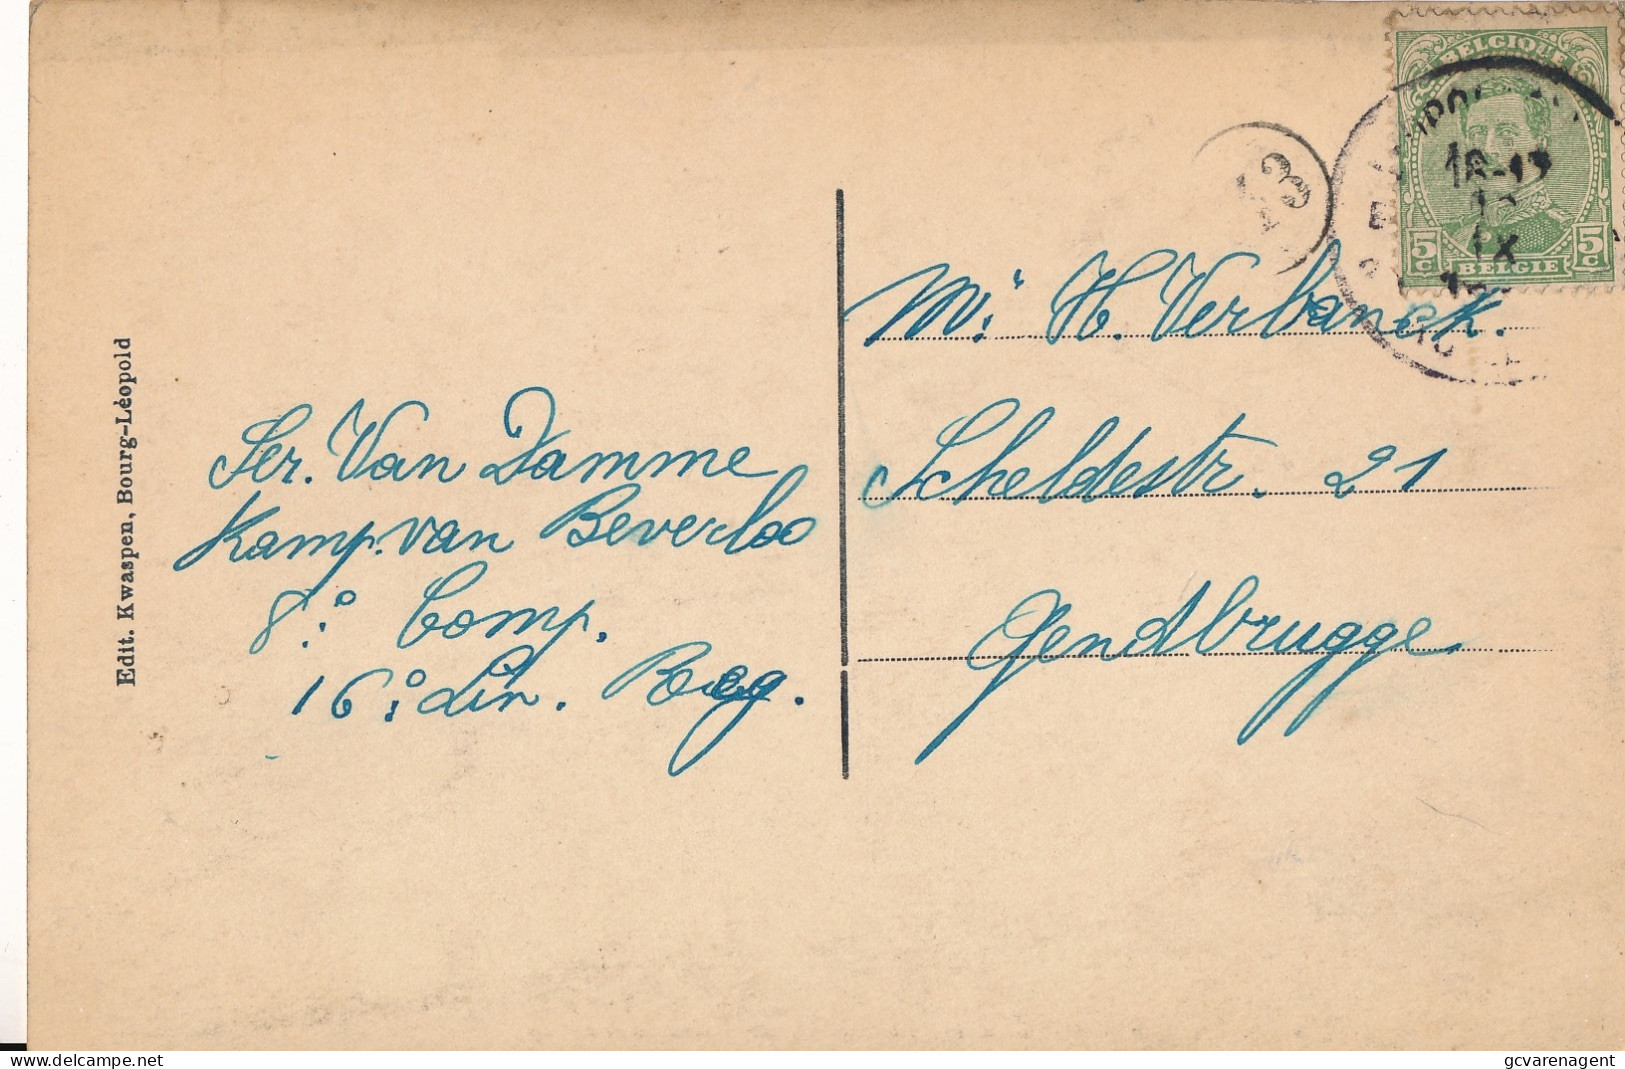 BELGIQUE
5 C
5 C
BELGIE
IX
Mr. H. Verbanck.
Scheldestr. 21
Gendbrugge
Ser. Van Damme
Kamp. van Beverloo
8° Comp.
16° Lin. Reg.
Edit. Kwaspen, Bourg-Léopold
delcampe.net
gcvarenagent